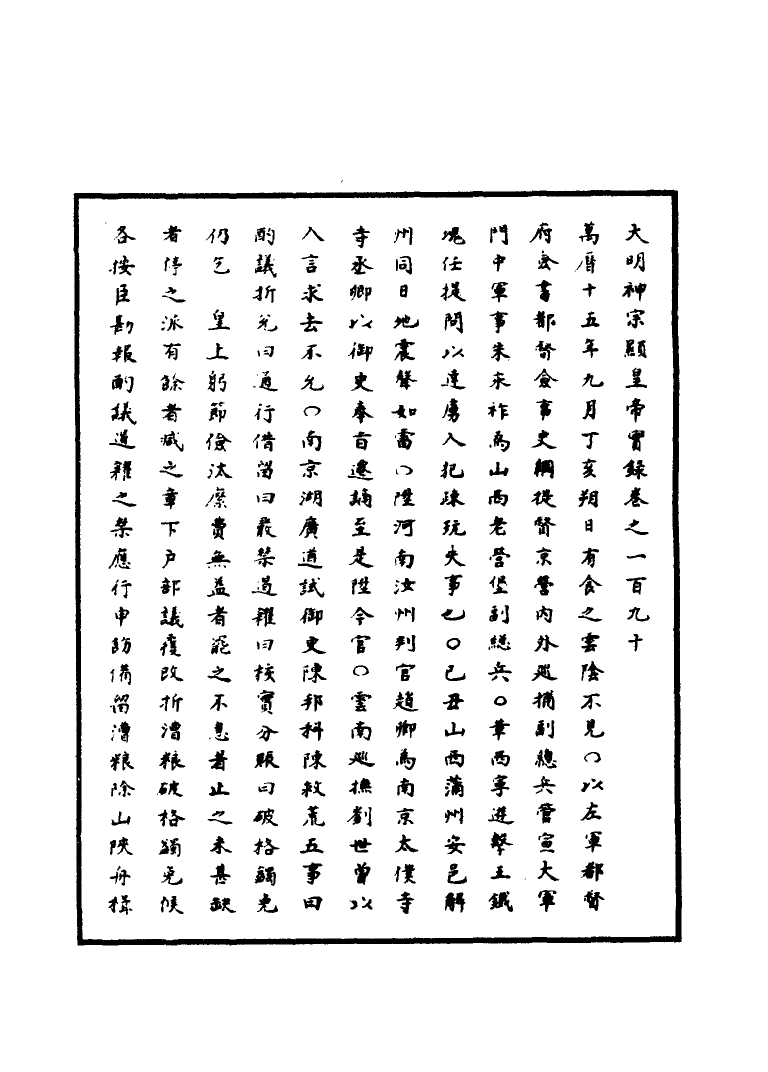 大明神宗顯皇帝實錄卷之一百九十
萬曆十五年九月丁亥朔日有食之雲陰不見○以左軍都督
府僉書都督僉事史綱提督京營內外巡捕副總兵管宣大軍
門中軍事朱來祚為山西老營堡副總兵○革西寧遊擊王鐵
塊任提問以達虜入犯疎玩失事也○己丑山西蒲州安邑解
州同日地震聲如雷○陞河南汝州判官趙卿為南京太僕寺
寺丞卿以御史奉旨遷謫至是陞今官○雲南巡撫劉世曾以
人言求去不允○南京湖廣道試御史陳邦科陳救荒五事曰
酌議折兌曰通行借留曰嚴禁遏糴曰核實分賑曰破格蠲免
仍乞　皇上躬節儉汰縻費無益者罷之不急者止之未甚缺
者停之派有餘者減之章下戶部議覆改折漕粮破格蠲免候
各按臣勘報酌議遏糴之禁應行申飭備留漕粮除山陝舟楫